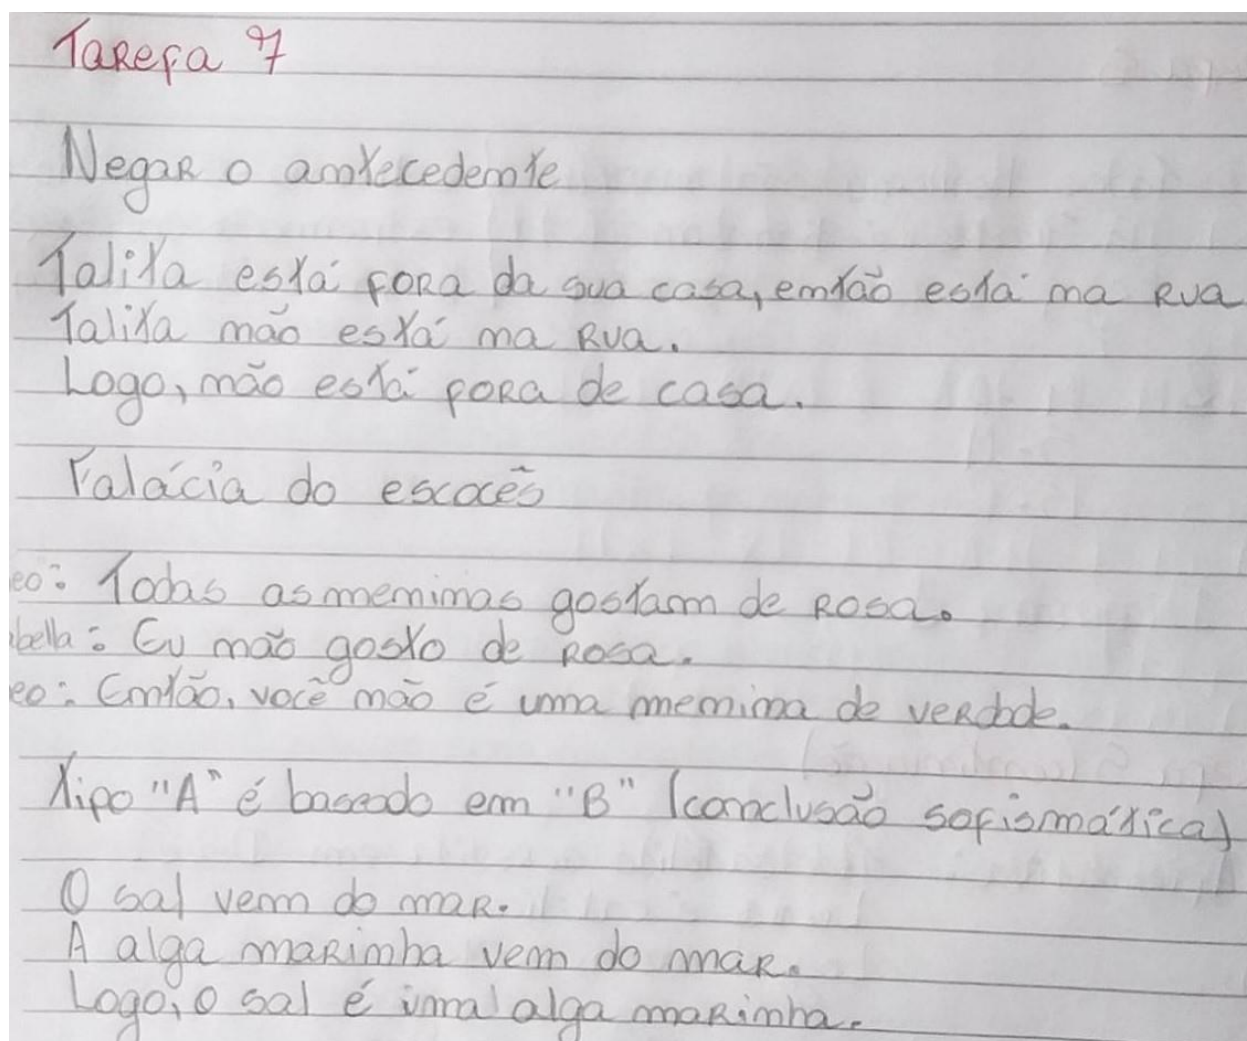 Tarefa 7
Negar o antecedente
Talita está fora da sua casa, então está na rua
Talita não está na rua.
Logo, não está fora de casa.
Falácia do escocês
eo: Todas as meninas gostam de rosa.
bella: Eu não gosto de rosa.
eo: Então, você não é uma menina de verdade.
Tipo "A" é baseado em "B" (conclusão sofismática)
O sal vem do mar.
A alga marinha vem do mar.
Logo, o sal é uma alga marinha.